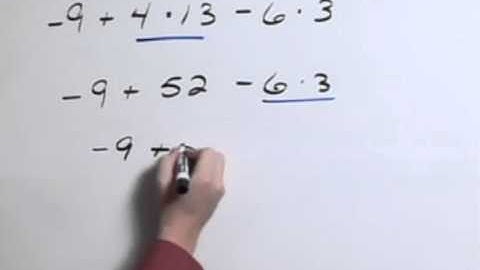 -9 + 4 · 13 - 6 · 3
-9 + 52 - 6 · 3
-9 +